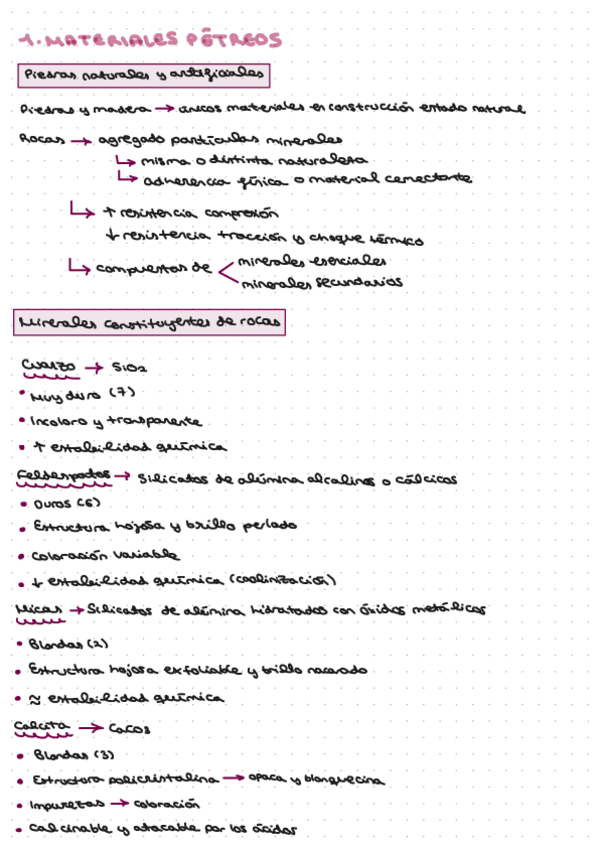 1. MATERIALES PÉTREOS
Piedras naturales y artificiales
Piedras y madera → únicos materiales en construcción estado natural
Rocas → agregado partículas minerales
↳ misma o distinta naturaleza
↳ adherencia física o material cementante
↳ ↑ resistencia compresión
↓ resistencia tracción y choque térmico
↳ compuestas de < minerales esenciales
minerales secundarios
Minerales constituyentes de rocas
Cuarzo → SiO2
• Muy duro (7)
• Incoloro y transparente
• ↑ estabilidad química
Feldespatos → Silicatos de alúmina alcalinos o cálcicos
• Duros (6)
• Estructura hojosa y brillo perlado
• Coloración variable
• ↓ estabilidad química (caolinización)
Micas → Silicatos de alúmina hidratados con óxidos metálicos
• Blandas (2)
• Estructura hojosa exfoliable y brillo nacarado
• ≈ estabilidad química
Calcita → CaCO3
• Blandas (3)
• Estructura policristalina → opaca y blanquecina
• Impurezas → coloración
• Calcinable y atacable por los ácidos